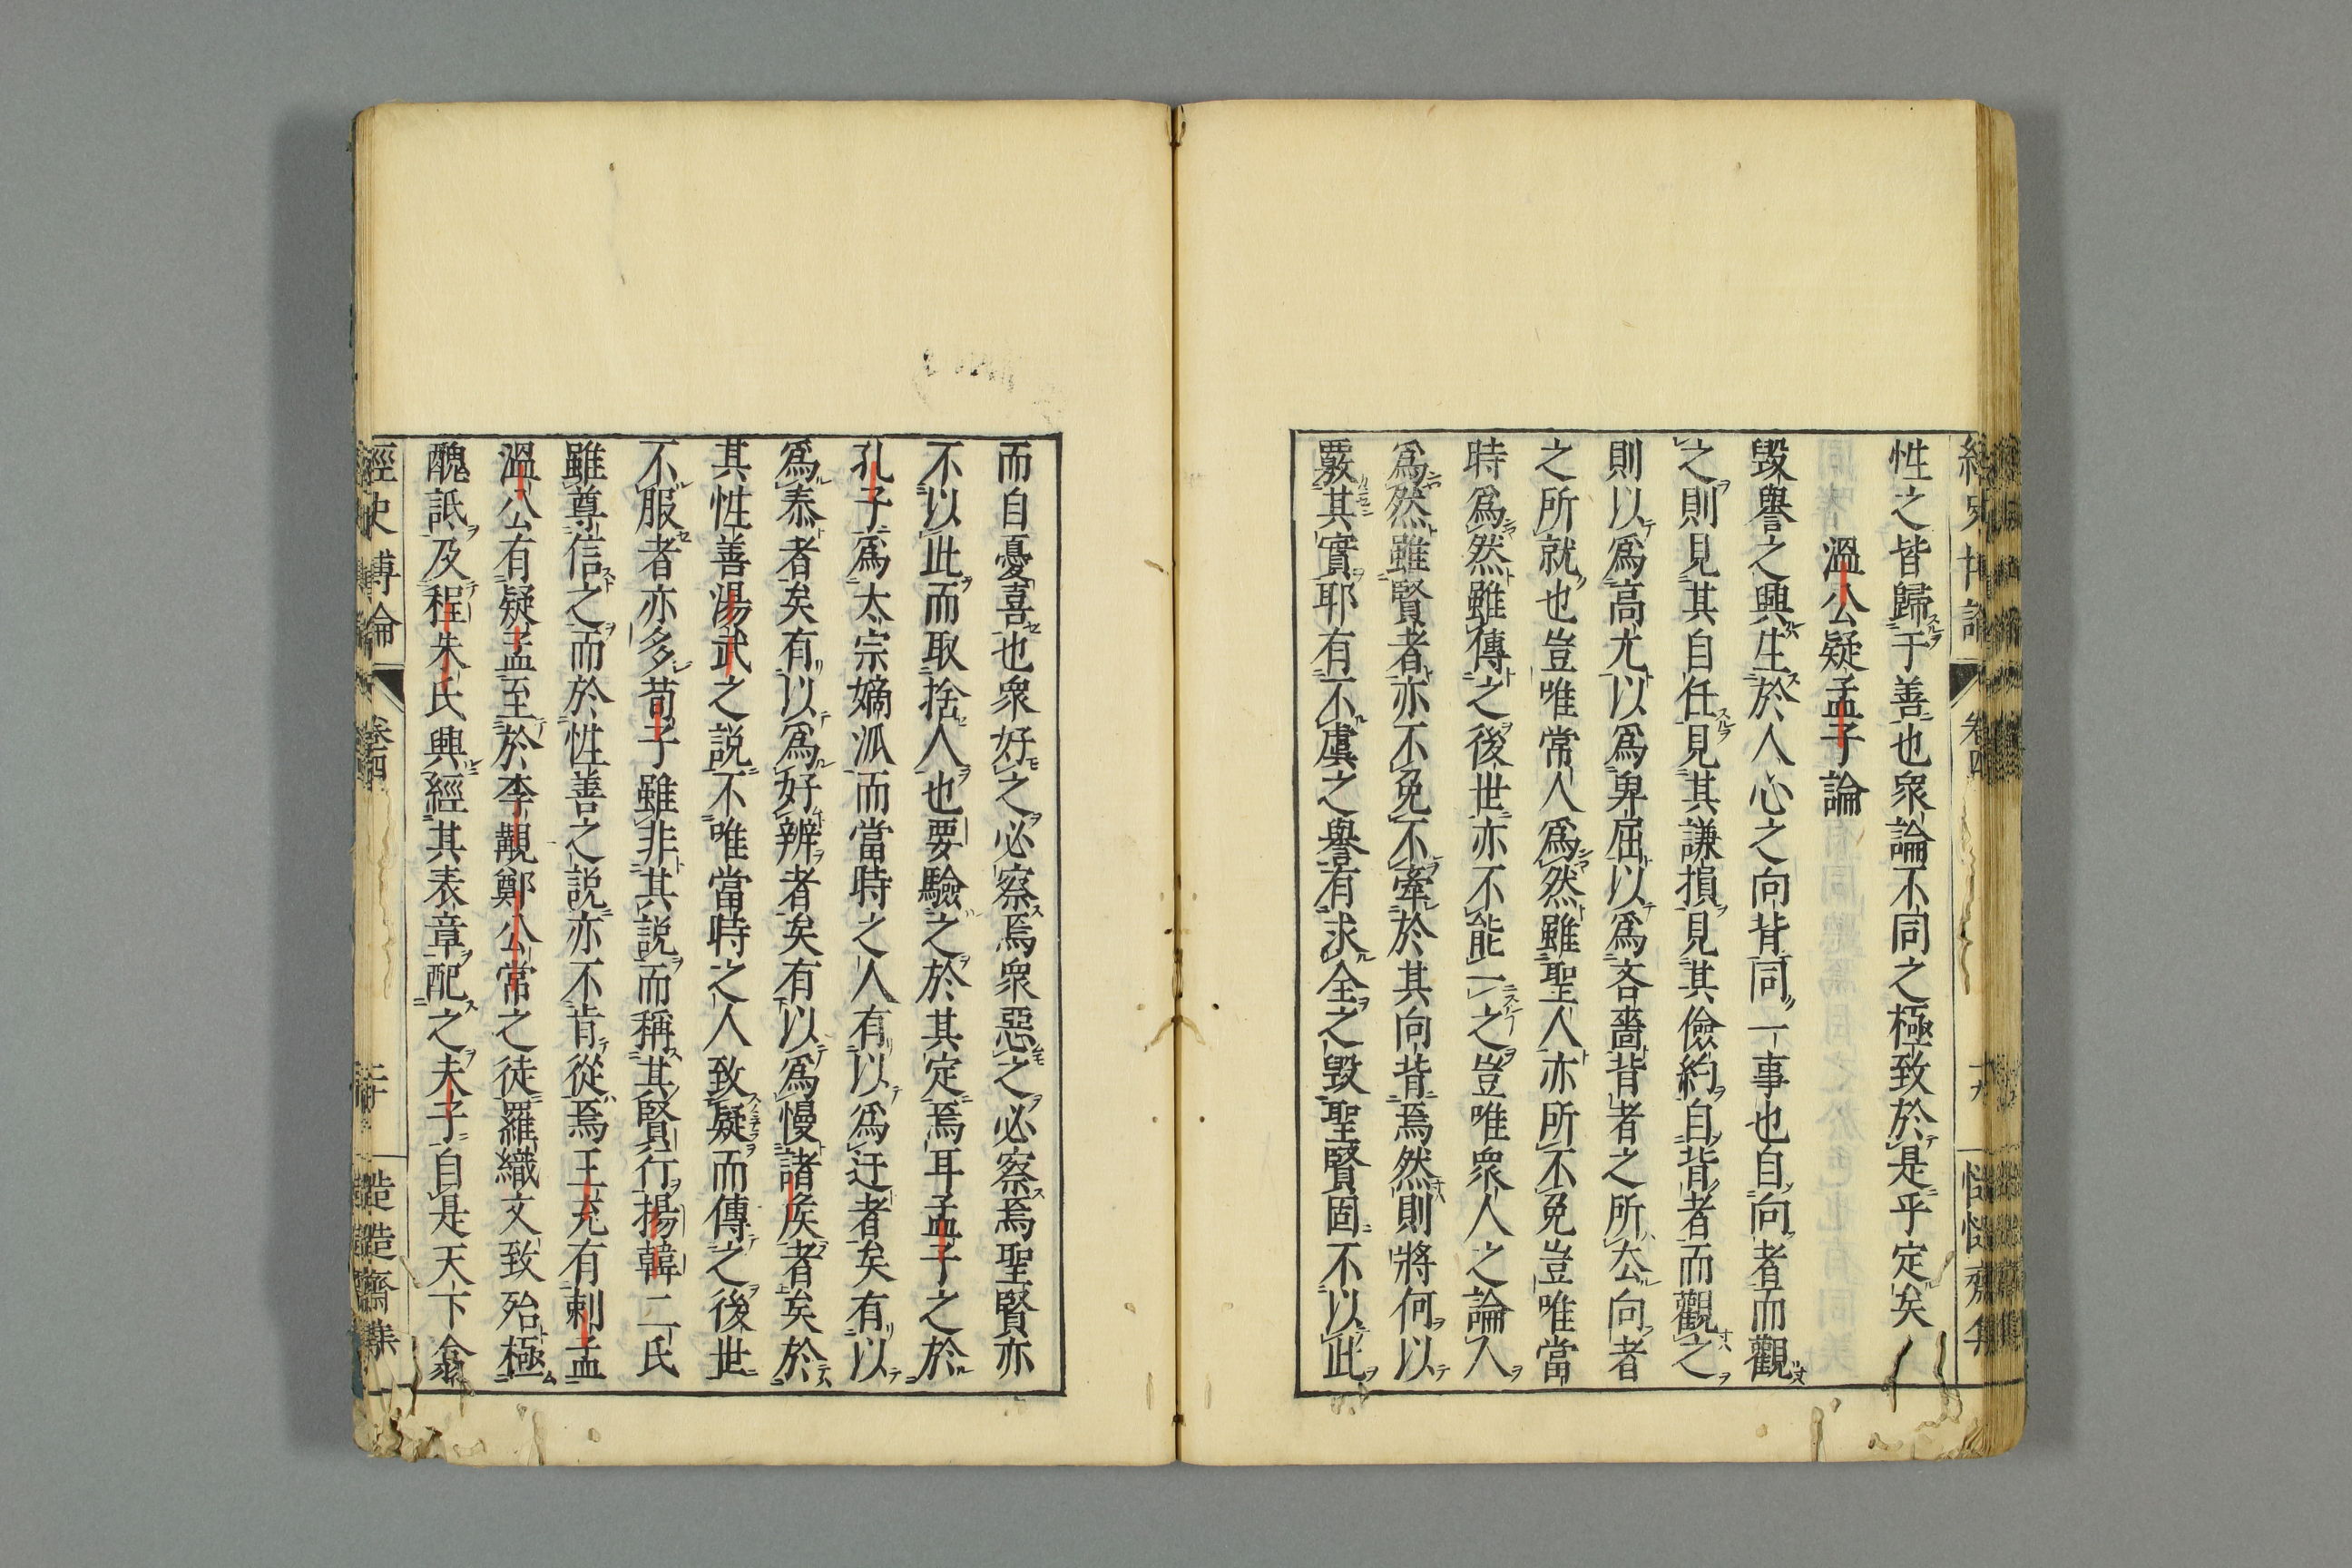 性之皆歸于善也衆論不同之極致於是乎定矣
溫公疑孟子論
毀譽之興生於人心之向背同一事也自向者而觀
之則見其自任見其謙損見其儉約自背者而觀之
則以爲高尤以爲卑屈以爲吝嗇背者之所厺向者
之所就也豈唯常人爲然雖聖人亦所不免豈唯當
時爲然雖傳之後世亦不能一之豈唯衆人之論人
爲然雖賢者亦不免不牽於其向背焉然則將何以
覈其實耶有不虞之譽有求全之毀聖賢固不以此
而自憂喜也衆好之必察焉衆惡之必察焉聖賢亦
不以此而取捨人也要驗之於其定焉耳孟子之於
孔子爲太宗嫡派而當時之人有以爲迂者矣有以
爲泰者矣有以爲好辨者矣有以爲慢諸矦者矣於
其性善湯武之説不唯當時之人致疑而傳之後世
不服者亦多荀子雖非其説而稱其賢行揚韓二氏
雖尊信之而於性善之説亦不肯從焉王充有刺孟
溫公有疑孟至於李覯鄭公常之徒羅織文致殆極
醜詆及程朱氏興經其表章配之夫子自是天下翕
經史博論 卷四 二十